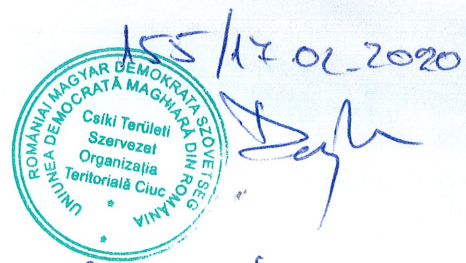 155/17.02.2020
ROMÁNIAI MAGYAR DEMOKRATA SZÖVETSÉG
UNIUNEA DEMOCRATĂ MAGHIARĂ DIN ROMÂNIA
Csíki Területi
Szervezet
Organizația
Teritorială Ciuc